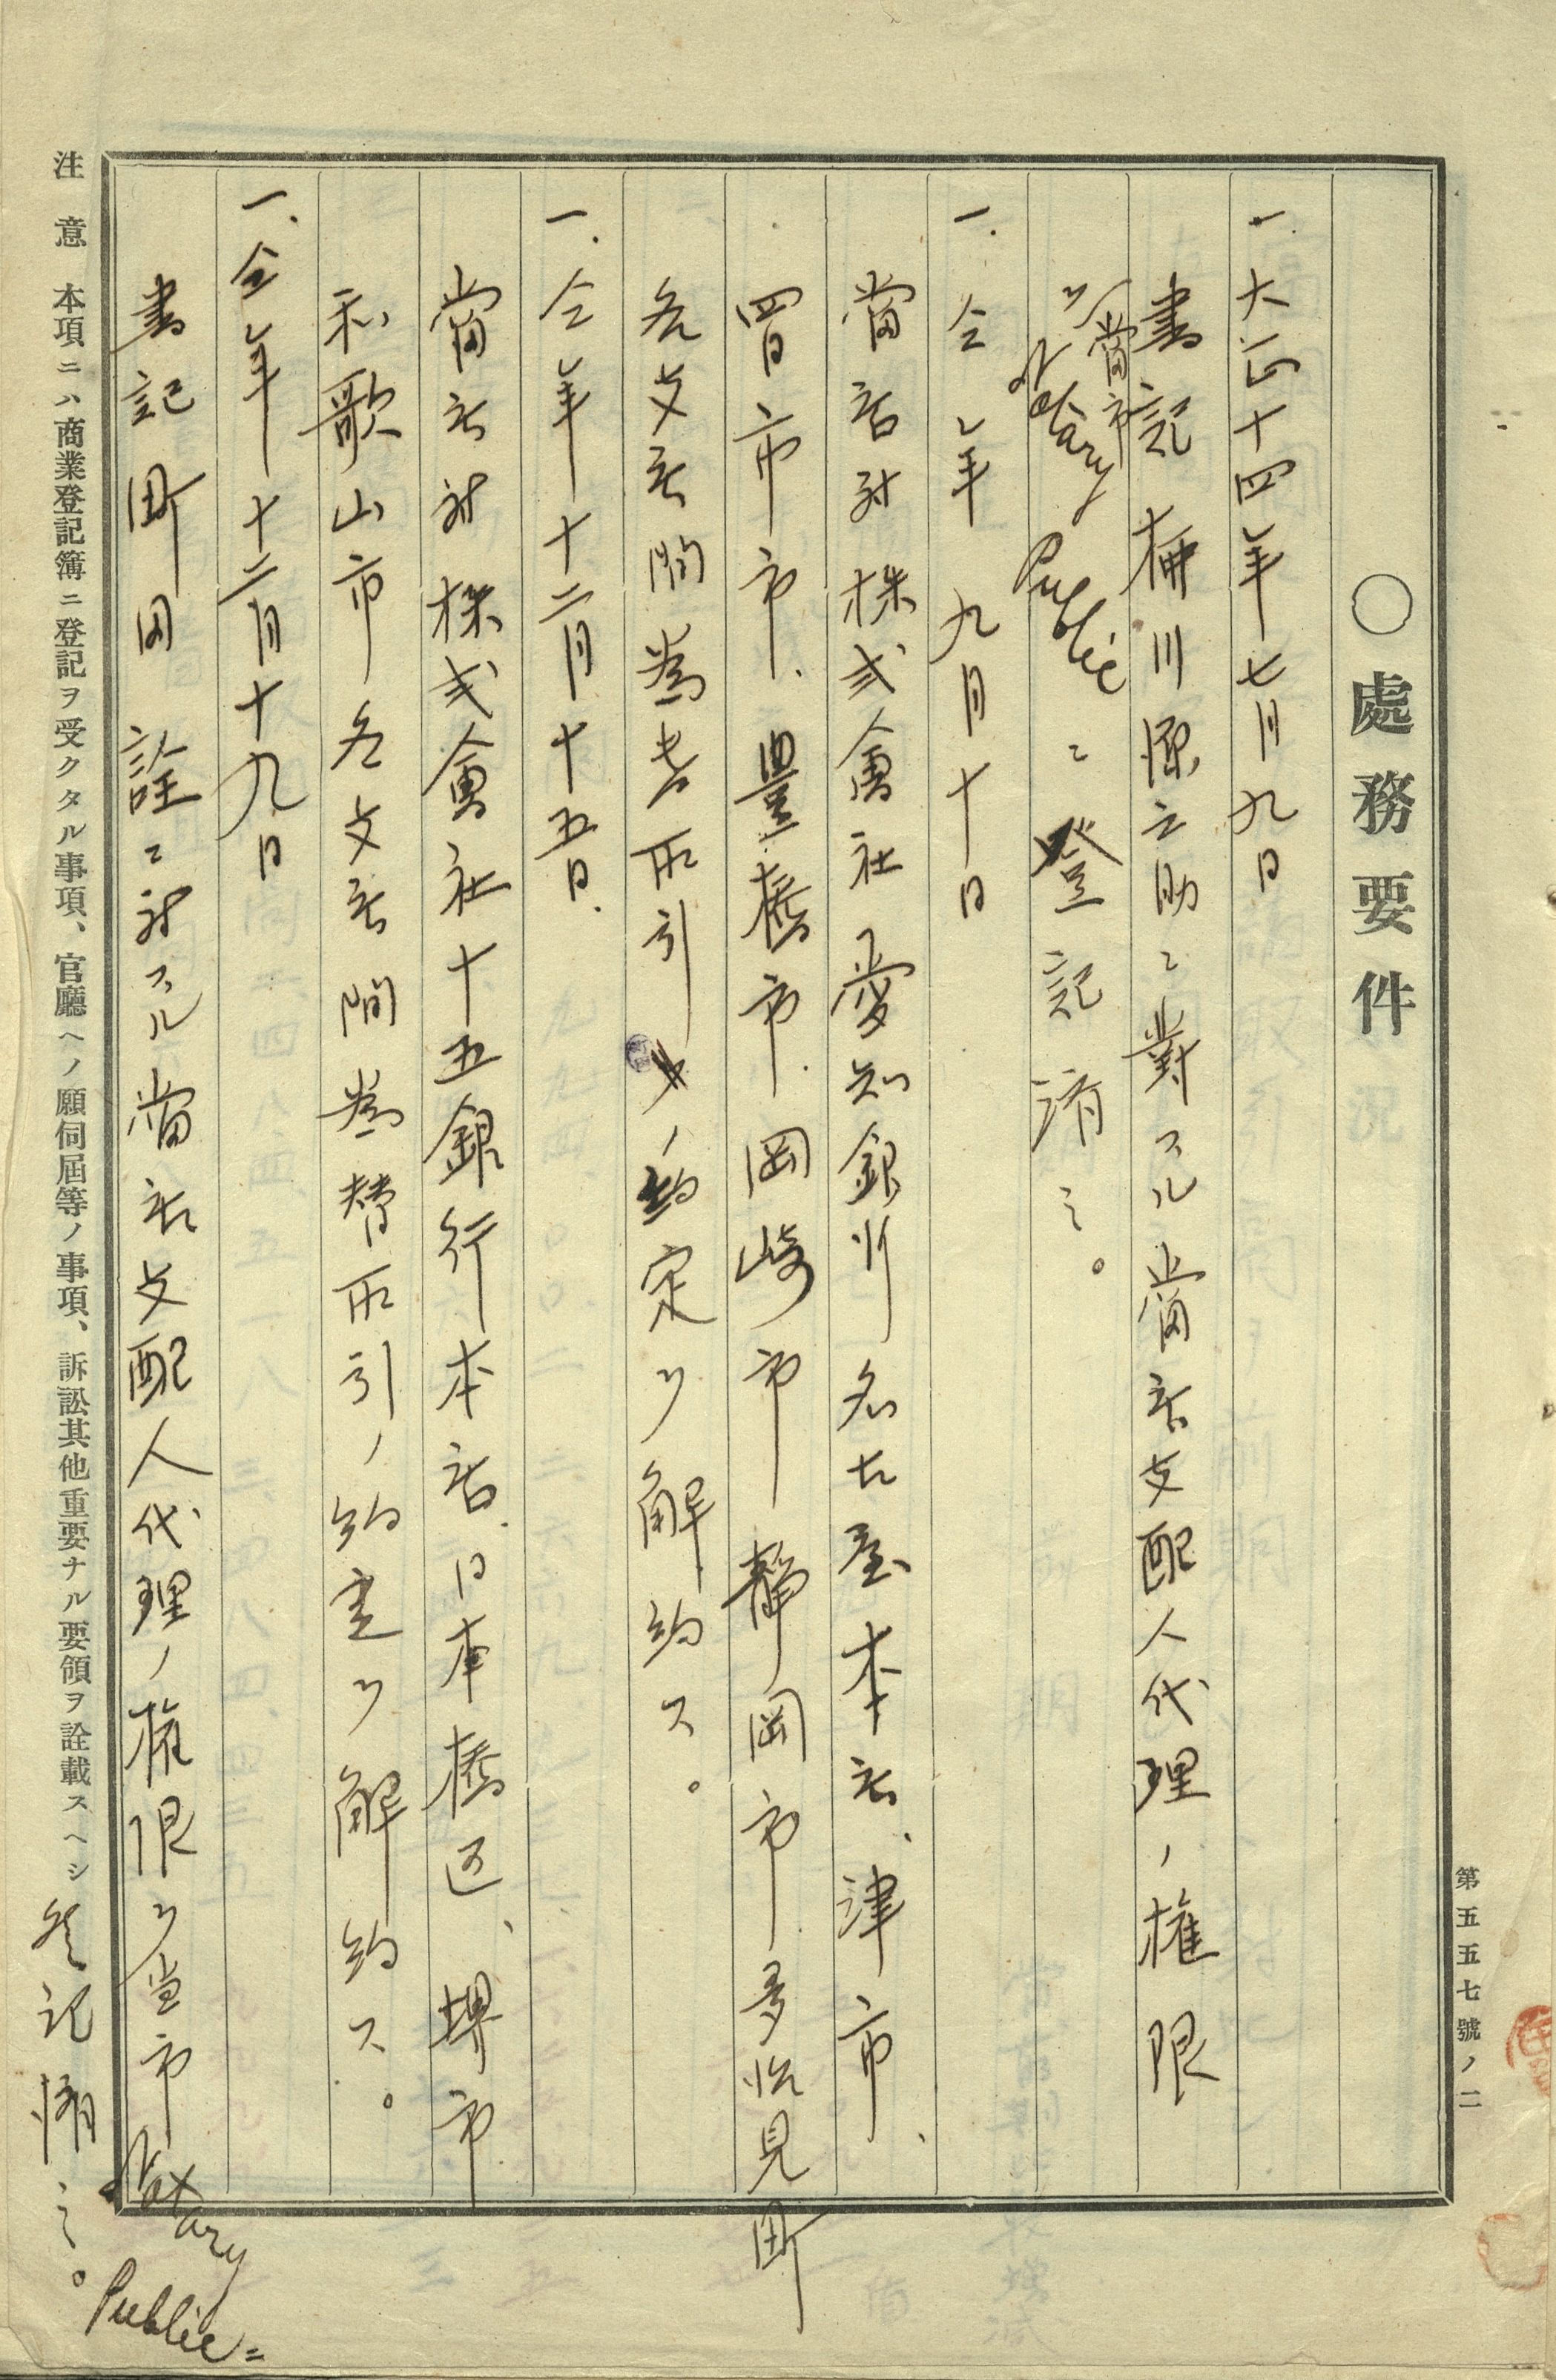 第五五七號ノ二
〇處務要件
一、大正十四年七月九日
書記 柳川源之助ニ對スル當店支配人代理ノ權限
ヲ當市 Notary Public ニ登記済ミ。
一、仝年九月十日
當店対株式會社愛知銀行名古屋本店、津市、
四日市市、豊橋市、岡崎市 静岡市 多治見町
各支店間為替取引ノ約定ヲ解約ス。
一、仝年十二月十五日
當店対株式會社十五銀行本店、日本橋区、堺市
和歌山市各支店間為替取引ノ約定ヲ解約ス。
一、仝年十二月十九日
書記 町田 詮ニ対スル當店支配人代理ノ権限ヲ当市 Notary Public =
登記濟ミ。
注意 本項ニハ商業登記簿ニ登記ヲ受クタル事項、官廳ヘノ願伺屆等ノ事項、訴訟其他重要ナル要領ヲ詮載スヘシ